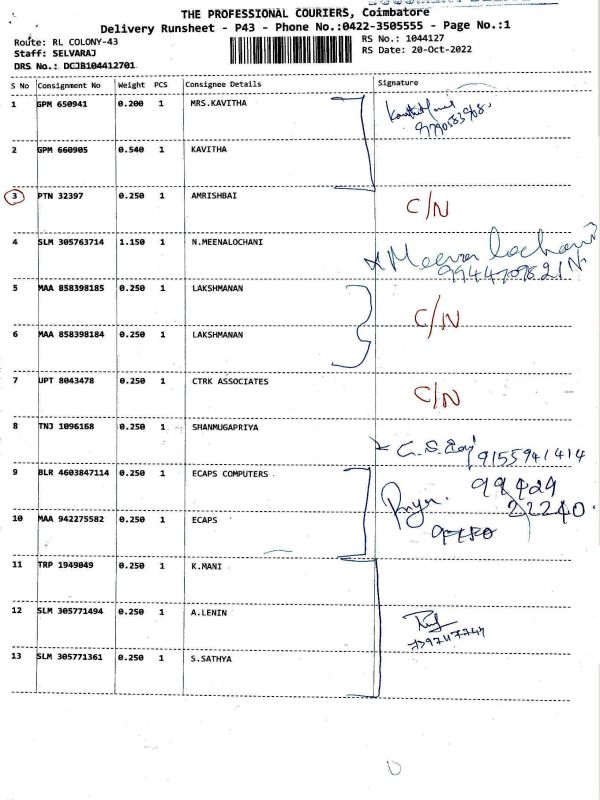 THE PROFESSIONAL COURIERS, Coimbatore
Delivery Runsheet - P43 - Phone No.:0422-3505555 - Page No.:1
Route: RL COLONY-43
RS No.: 1044127
Staff: SELVARAJ
RS Date: 20-Oct-2022
DRS No.: DCJB104412701
S No Consignment No Weight PCS Consignee Details Signature
1 GPM 650941 0.200 1 MRS.KAVITHA
2 GPM 660905 0.540 1 KAVITHA
3 PTN 32397 0.250 1 AMRISHBAI C/N
4 SLM 305763714 1.150 1 N.MEENALOCHANI Meena lochani N
5 MAA 858398185 0.250 1 LAKSHMANAN
C/N
6 MAA 858398184 0.250 1 LAKSHMANAN
7 UPT 8043478 0.250 1 CTRK ASSOCIATES C/N
8 TNJ 1096168 0.250 1 SHANMUGAPRIYA 9155941414
9 BLR 4603847114 0.250 1 ECAPS COMPUTERS
22240.
10 MAA 942275582 0.250 1 ECAPS
11 TRP 1949049 0.250 1 K.MANI
12 SLM 305771494 0.250 1 A.LENIN
13 SLM 305771361 0.250 1 S.SATHYA